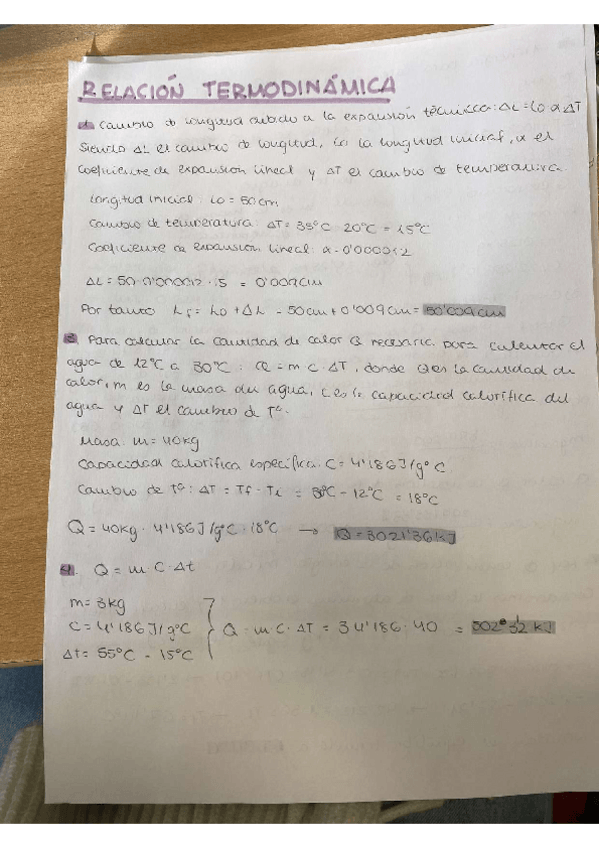 RELACIÓN TERMODINÁMICA
1. Cambio de longitud debido a la expansión térmica: ΔL = L0 α ΔT
Siendo ΔL el cambio de longitud, L0 la longitud inicial, α el
coeficiente de expansión lineal y ΔT el cambio de temperatura.
Longitud inicial: L0 = 50cm
Cambio de temperatura: ΔT = 35°C 20°C = 15°C
Coeficiente de expansión lineal: α = 0'000012
ΔL = 50 · 0'000012 · 15 = 0'009cm
Por tanto Lf = L0 + ΔL = 50cm + 0'009cm = 50'009cm
2. Para calcular la cantidad de calor Q necesaria para calentar el
agua de 12°C a 30°C: Q = m · C · ΔT, donde Q es la cantidad de
calor, m es la masa del agua, C es la capacidad calorífica del
agua y ΔT el cambio de Tº.
Masa: m = 40kg
Capacidad calorífica específica: C = 4'186J/g°C
Cambio de Tº: ΔT = Tf - Ti = 30°C - 12°C = 18°C
Q = 40kg · 4'186J/g°C · 18°C → Q = 3021'36kJ
Q = m · C · Δt
m = 3kg
C = 4'186J/g°C } Q = m · C · ΔT = 3 4'186 · 40 = 502'32 kJ
Δt = 55°C - 15°C